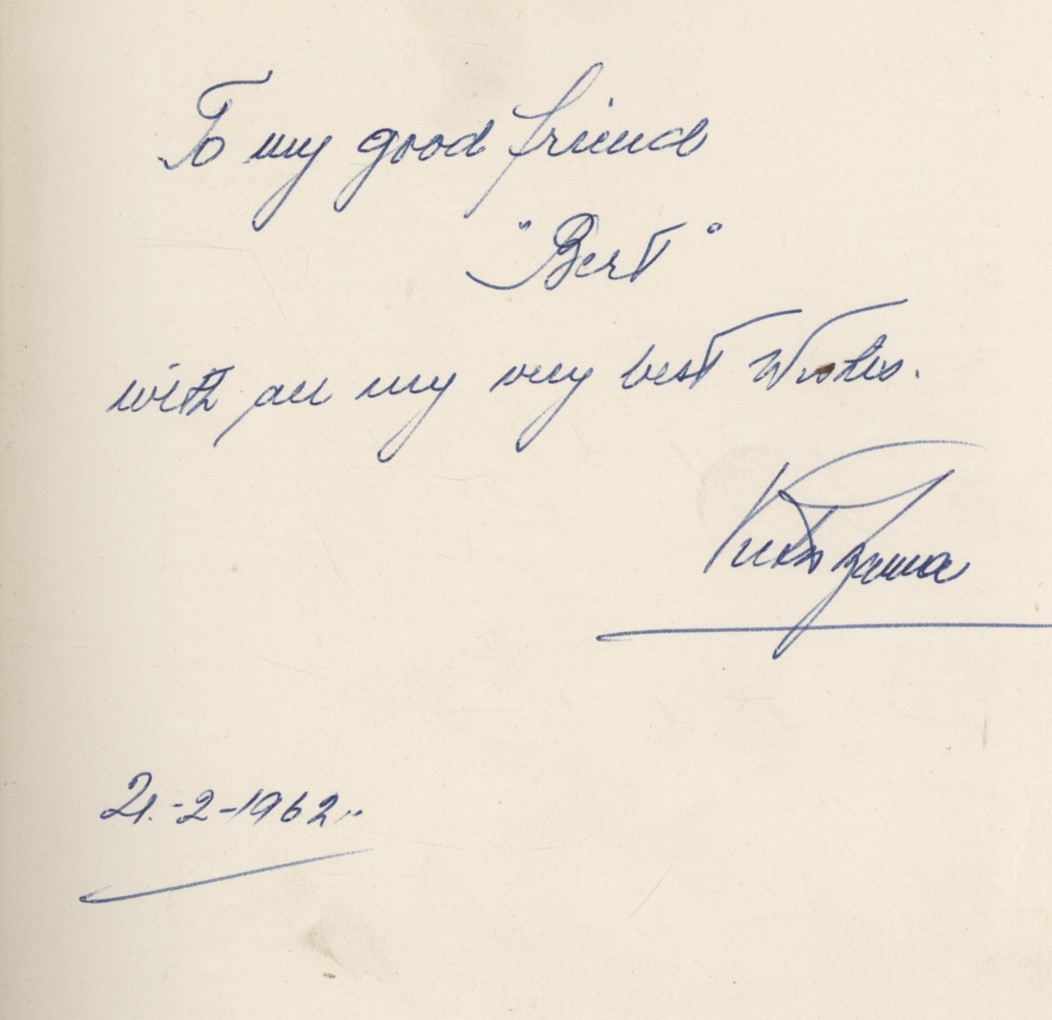 To my good friend
"Bert"
with all my very best Wishes.
21.-2-1962..